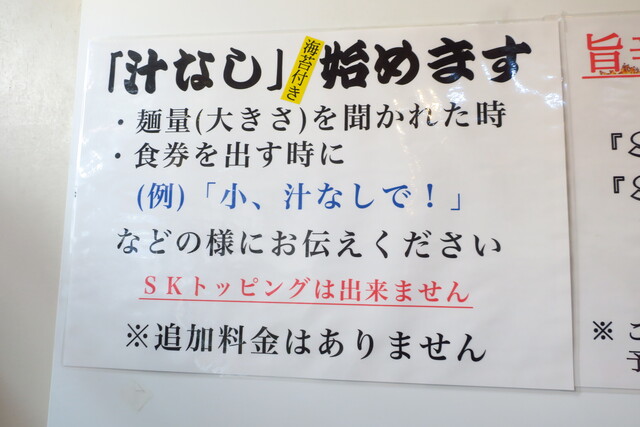 「汁なし」海苔付き始めます
・麺量(大きさ)を聞かれた時
・食券を出す時に
(例)「小、汁なしで！」
などの様にお伝えください
ＳＫトッピングは出来ません
※追加料金はありません
旨
※